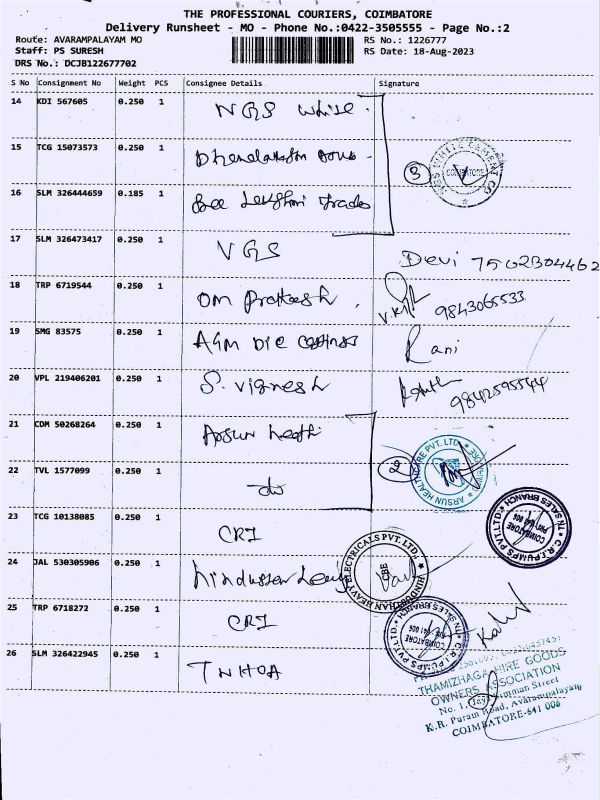 THE PROFESSIONAL COURIERS, COIMBATORE
Delivery Runsheet - MO - Phone No.:0422-3505555 - Page No.:2
Route: AVARAMPALAYAM MO
RS No.: 1226777
Staff: PS SURESH
RS Date: 18-Aug-2023
DRS No.: DCJB122677702
S No Consignment No Weight PCS Consignee Details Signature
14 KDI 567605 0.250 1 NGS White
15 TCG 15073573 0.250 1
3
COIMBATORE
16 SLM 326444659 0.185 1 Sree Lakshmi Trades
17 SLM 326473417 0.250 1 VGS Devi 7502304462
18 TRP 6719544 0.250 1 Om Prakash 9843065533
19 SMG 83575 0.250 1 AGM Die Castings Rani
20 VPL 219406201 0.250 1 S. Vignesh 9842595544
21 CDM 50268264 0.250 1 Arsun Health
22 TVL 1577099 0.250 1 do
2
ARSUN HEALTHCARE PVT. LTD.
23 TCG 10138085 0.250 1 CRI
C.R.I. PUMPS PVT.LTD. TN SALES BRANCH
COIMBATORE
641 006
24 JAL 530305906 0.250 1 Hindusthan Heavy
HINDUSTHAN HEAVY ELECTRICALS PVT. LTD.,
CBE
25 TRP 6718272 0.250 1 CRI
C.R.I. PUMPS PVT.LTD. TN SALES BRANCH
COIMBATORE
641 006
26 SLM 326422945 0.250 1 TNHOA
THAMIZHAGA HIRE GOODS
OWNERS ASSOCIATION
No. 1, Jay Simman Street
K.R. Puram Road, Avarampalayam
COIMBATORE-641 006